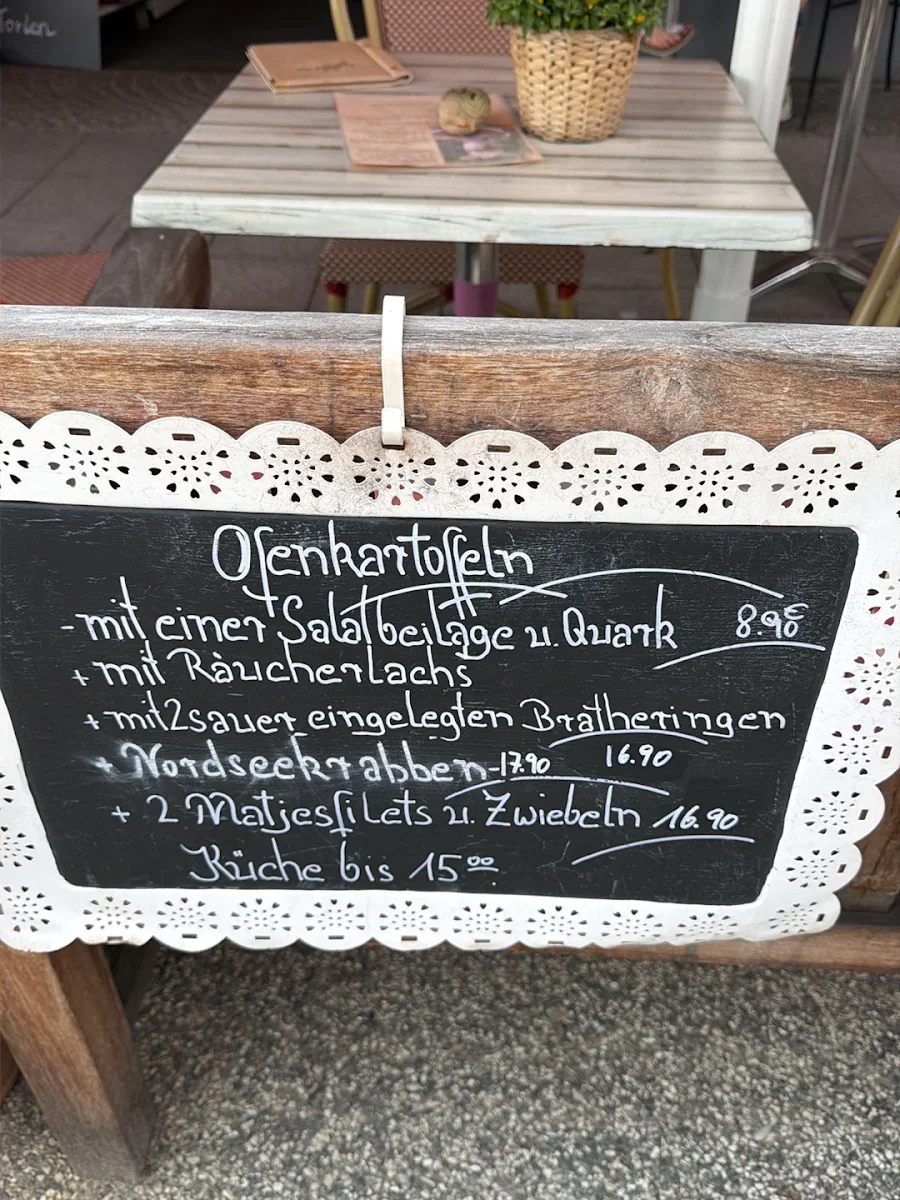 Torten
Ofenkartoffeln
- mit einer Salatbeilage u. Quark 8.90€
+ mit Räucherlachs
+ mit 2 sauer eingelegten Bratheringen
16.90
+ Nordseekrabben - 17.90
+ 2 Matjesfilets u. Zwiebeln 16.90
Küche bis 15⁰⁰